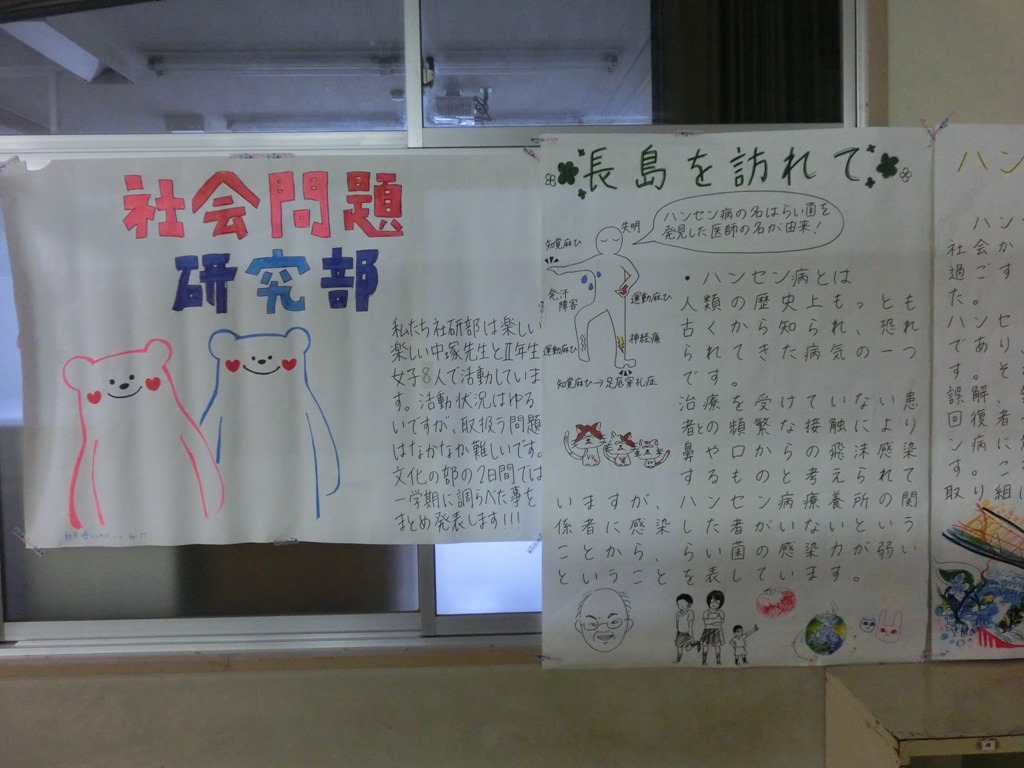 社会問題
研究部
私たち社研部は楽しい
楽しい中塚先生とⅡ年生
女子8人で活動していま
す。活動状況はゆる
いですが、取扱う問題
はなかなか難しいです。
文化の部の2日間では
一学期に調らべた事を
まとめ発表します!!!
長島を訪れて
ハンセン病の名はらい菌を
発見した医師の名が由来!
失明
知覚麻ひ
発汗
障害
運動麻ひ
運動麻ひ
神経痛
知覚麻ひ→足底穿孔症
・ハンセン病とは
人類の歴史上もっとも
古くから知られ、恐れ
られてきた病気の一つ
です。
治療を受けていない患
者との頻繁な接触により
鼻や口からの飛沫感染
するものと考えられて
いますが、ハンセン病療養所の関
係者に感染した者がいないという
ことから、らい菌の感染力が弱い
ということを表しています。
ハン
ハン
社会か
過ごす
た。
ハンセ
であり、
す。そ
誤解、
回復者
ン病に
す。こ
取り組